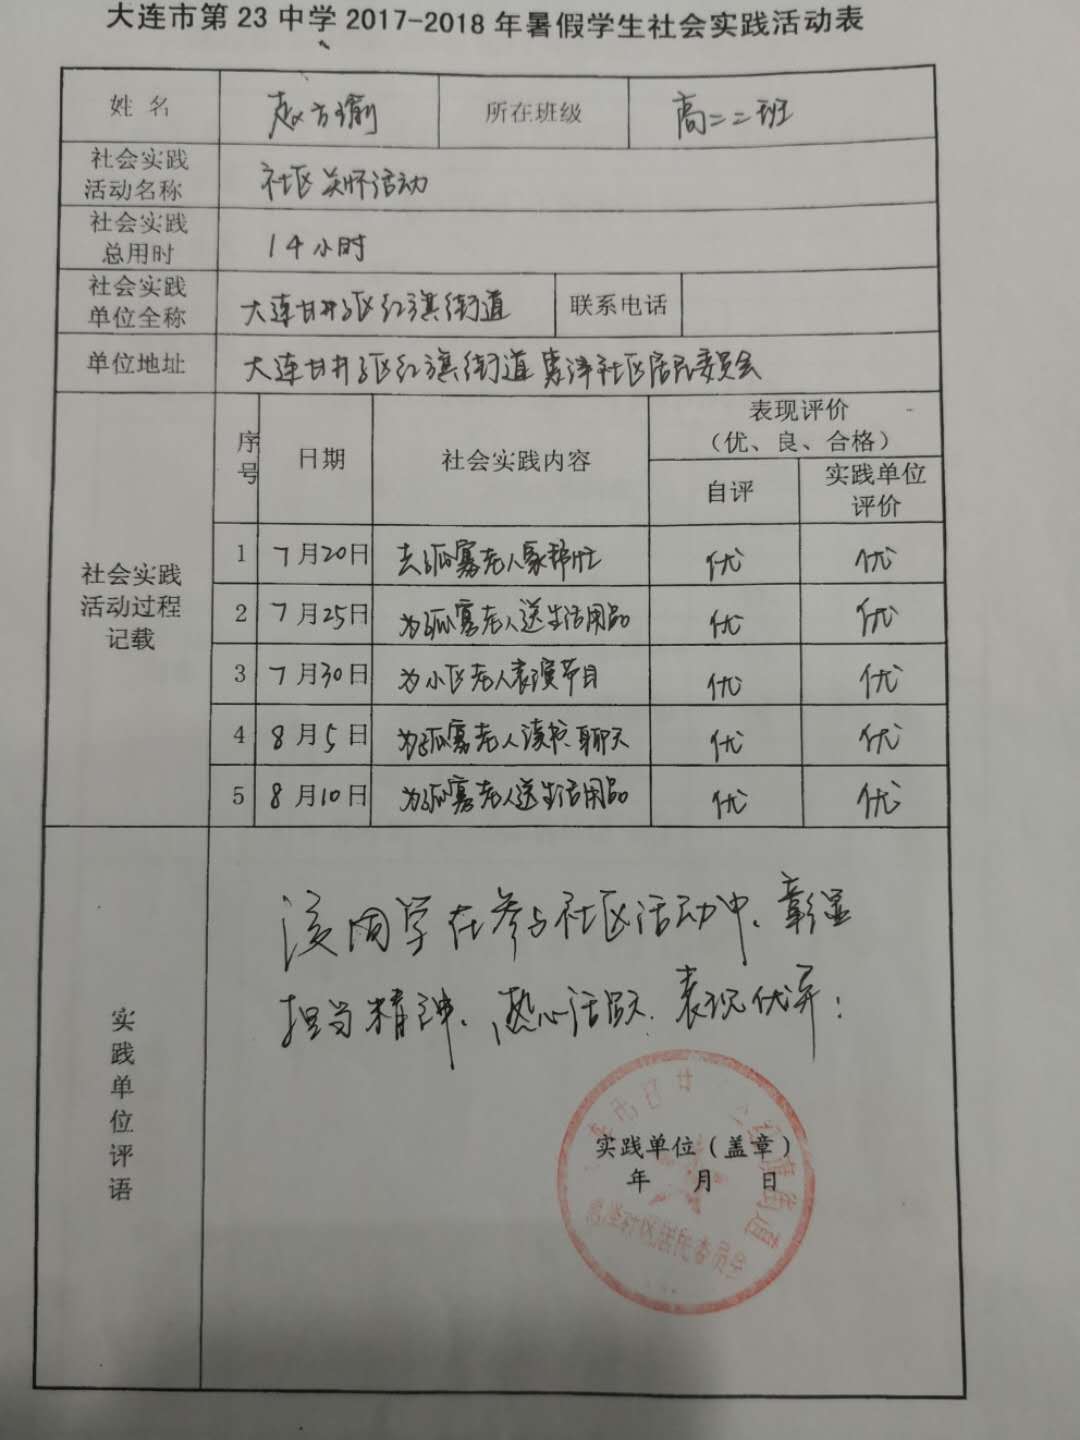 大连市第 23 中学 2017-2018 年暑假学生社会实践活动表
姓 名 赵方瑜 所在班级 高二二班
社会实践
活动名称
社区关怀活动
社会实践
总用时
14小时
社会实践
单位全称
大连甘井子区红旗街道 联系电话
单位地址 大连甘井子区红旗街道惠泽社区居民委员会
序
号
日期 社会实践内容
表现评价
(优、良、合格)
自评
实践单位
评价
社会实践
活动过程
记载
1 7月20日 去孤寡老人家帮忙 优 优
2 7月25日 为孤寡老人送生活用品 优 优
3 7月30日 为小区老人表演节目 优 优
4 8月5日 为孤寡老人读书、聊天 优 优
5 8月10日 为孤寡老人送生活用品 优 优
实
践
单
位
评
语
该同学在参与社区活动中、彰显
担当精神、热心活跃、表现优异:
实践单位（盖章）
年 月 日
红旗街道
惠泽社区居民委员会